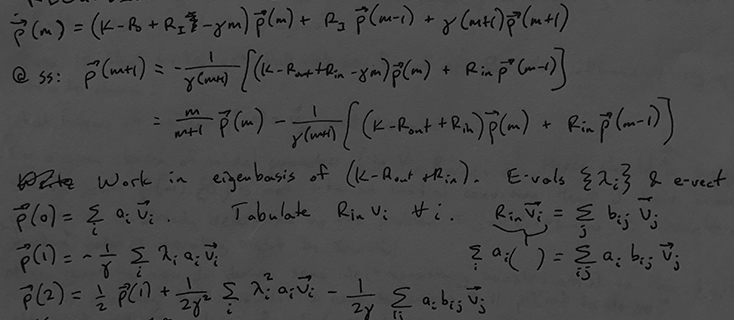 p⃗(m) = (K - R₀ + R_I - γm) p⃗(m) + R_I p⃗(m-1) + γ(m+1) p⃗(m+1)
@ ss: p⃗(m+1) = - 1/γ(m+1) [(K - R_out + R_in - γm) p⃗(m) + R_in p⃗(m-1)]
= m/m+1 p⃗(m) - 1/γ(m+1) [(K - R_out + R_in) p⃗(m) + R_in p⃗(m-1)]
Work in eigenbasis of (K - R_out + R_in). E-vals {λᵢ} & e-vect
p⃗(0) = Σᵢ aᵢ v⃗ᵢ. Tabulate R_in vᵢ ∀ i. R_in v⃗ᵢ = Σⱼ bᵢⱼ v⃗ⱼ
p⃗(1) = - 1/γ Σᵢ λᵢ aᵢ v⃗ᵢ Σᵢ aᵢ( ) = Σᵢⱼ aᵢ bᵢⱼ v⃗ⱼ
p⃗(2) = 1/2 p⃗(1) + 1/2γ² Σᵢ λᵢ² aᵢ v⃗ᵢ - 1/2γ Σᵢⱼ aᵢ bᵢⱼ v⃗ⱼ